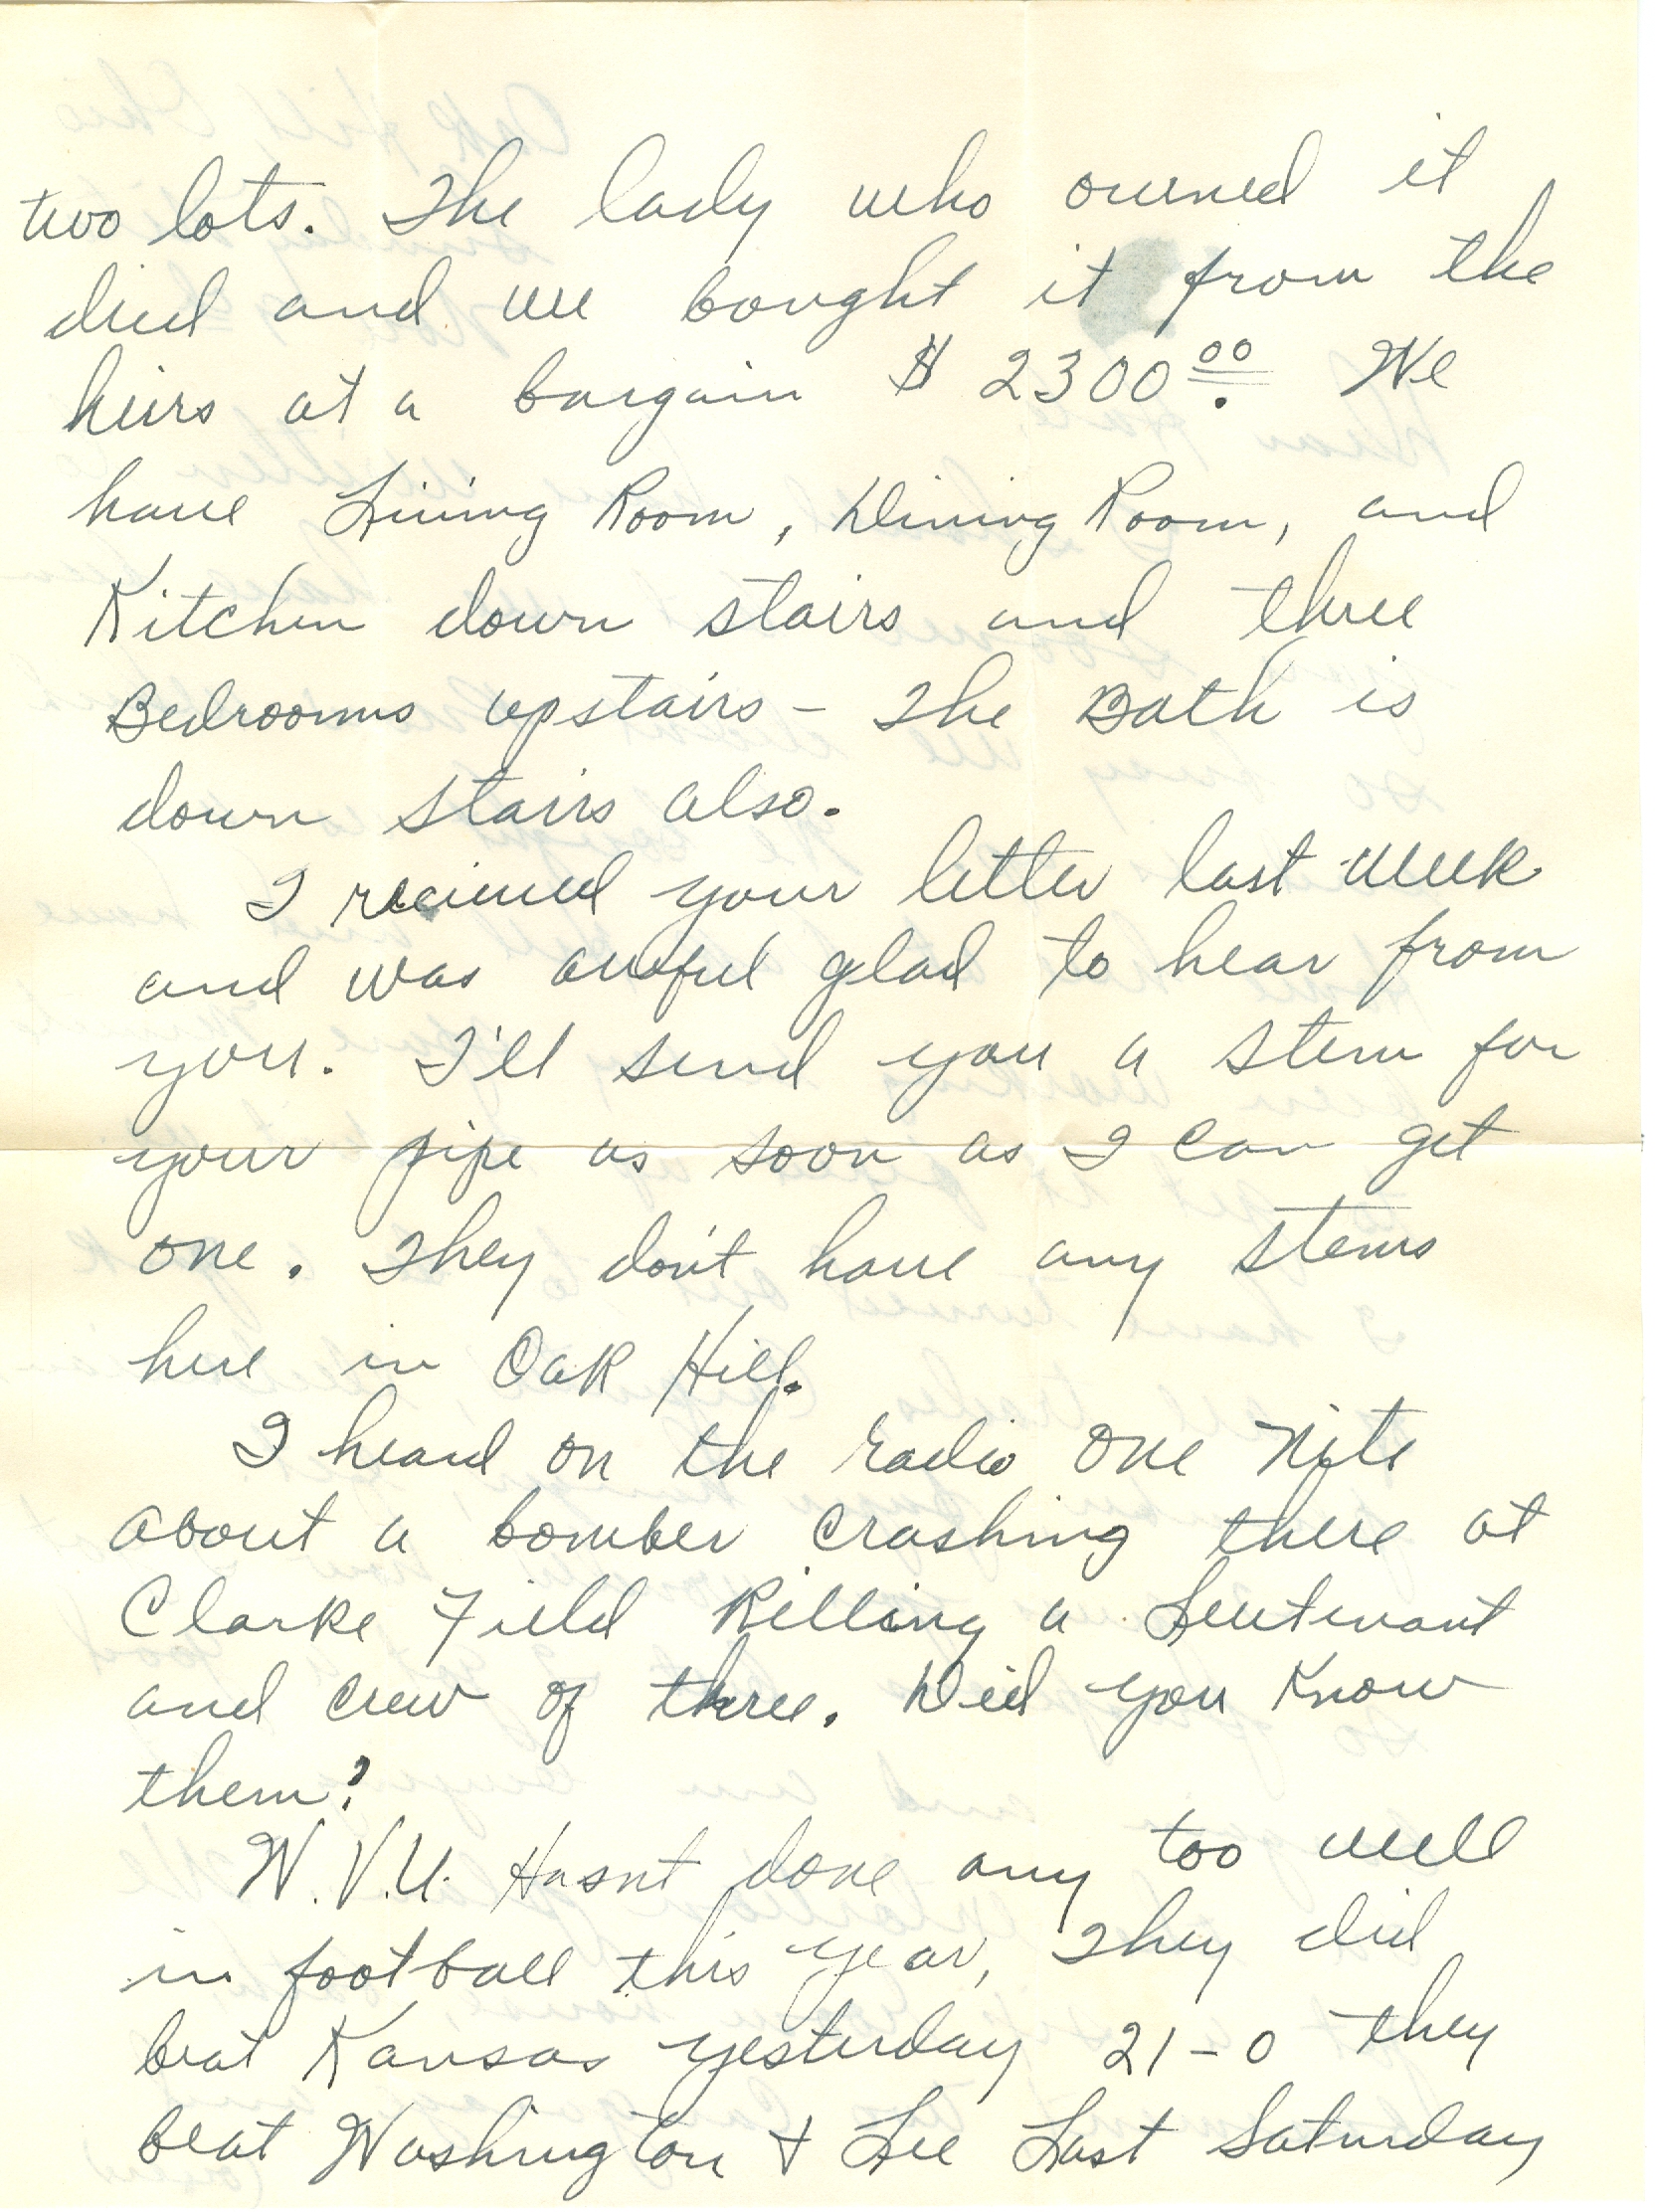 two lots. The lady who owned it
died and we bought it from the
heirs at a bargain $ 2300.00 We
have Living Room, Dining Room, and
Kitchen down stairs and three
Bedrooms upstairs - The Bath is
down stairs also.
I recieved your letter last week
and was awful glad to hear from
you. I'll send you a stem for
your pipe as soon as I can get
one. They don't have any stems
here in Oak Hill.
I heard on the radio one nite
about a bomber crashing there at
Clarke Field Killing a Leutenant
and crew of three. Did you Know
them?
W.V.U. Hasnt done any too well
in football this year, They did
beat Kansas yesterday 21-0 they
beat Washington & Lee Last Saturday